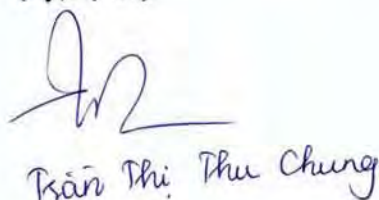 Trần Thị Thu Chung